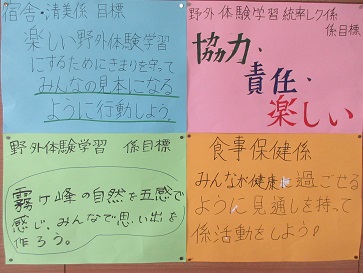 宿舎・清美係 目標
楽しい野外体験学習
にするためにきまりを守って
みんなの見本になる
ように行動しよう。
野外体験学習 統率レク係
係目標
協力・
責任・
楽しい
野外体験学習 係目標
霧ヶ峰の自然を五感で
感じ、みんなで思い出を
作ろう。
食事保健係
みんなが健康に過ごせる
ように見通しを持って
係活動をしよう!